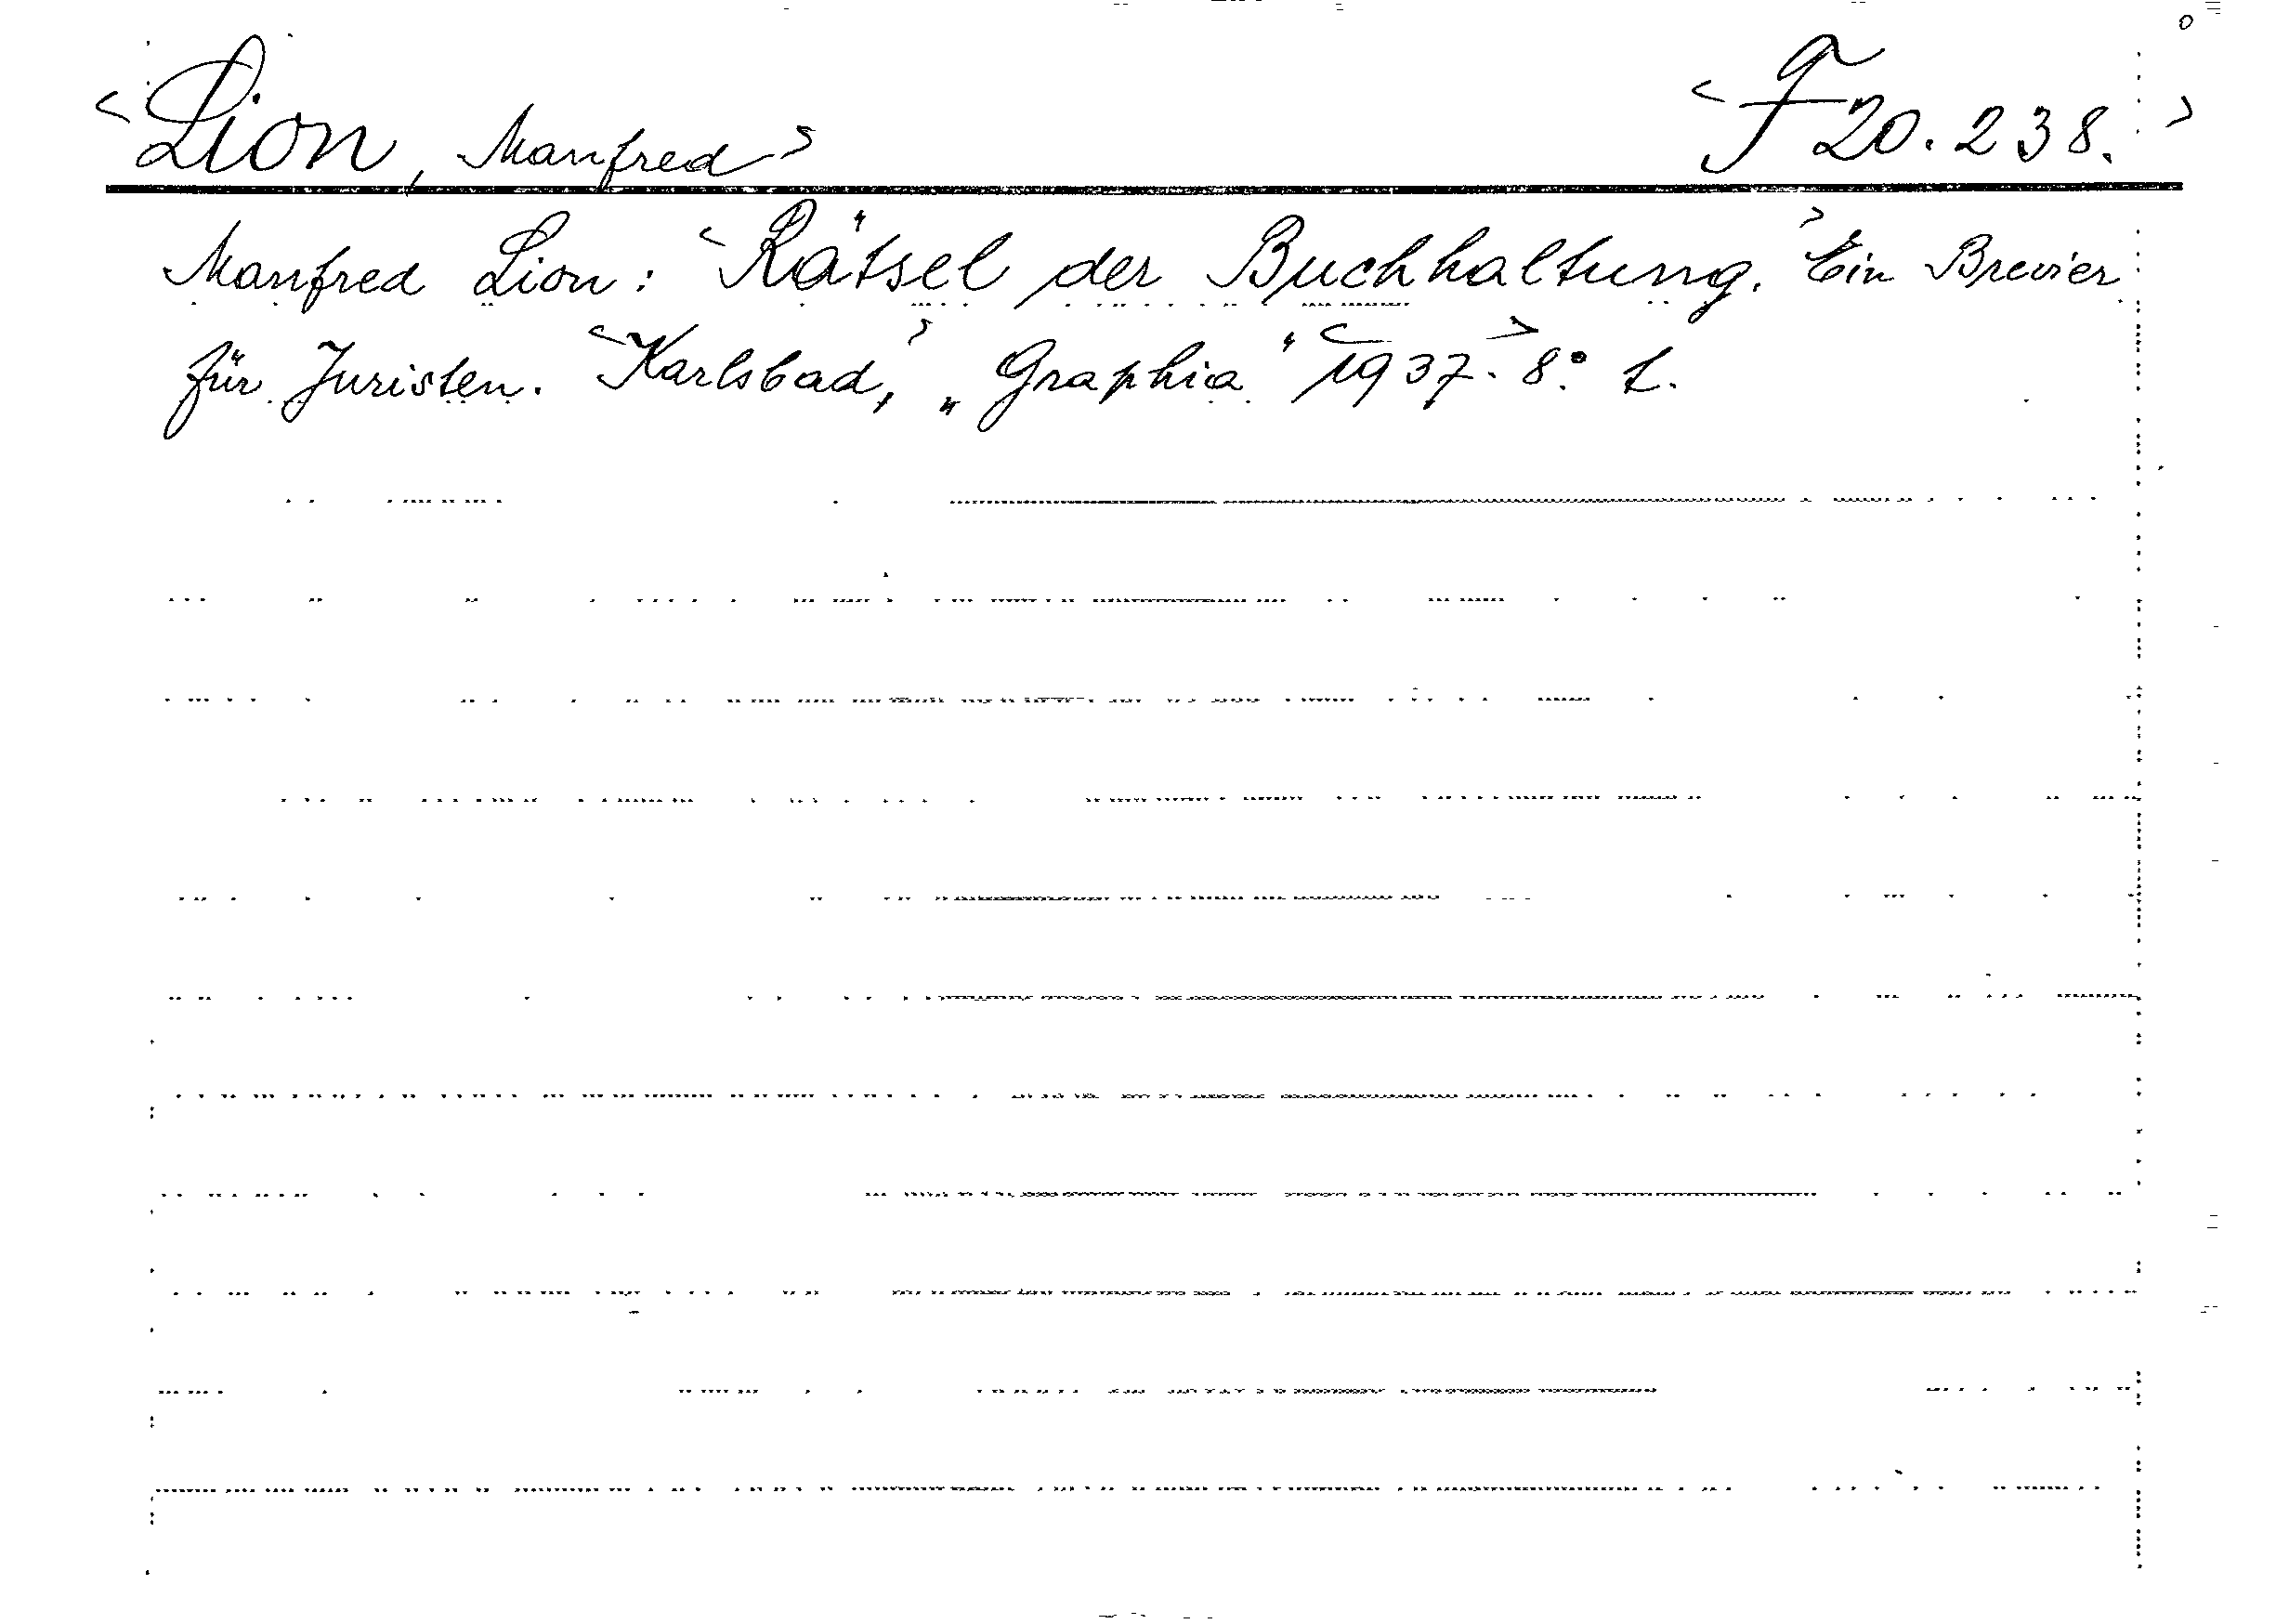 <Lion, Manfred> <F 20.238.>
Manfred Lion: <Rätsel der Buchhaltung.> Ein Brevier
für Juristen. <Karlsbad,> „Graphia" <1937.> 8.° L.